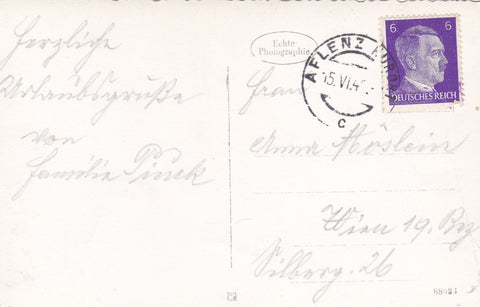 Herzliche
Urlaubsgrüße
von
Familie
Echte
Photographie
AFLENZ KURORT
15.VI.4
c
6 6
DEUTSCHES REICH
Frau
Anna Höslein
Wien 19. Bez
Silberg. 26